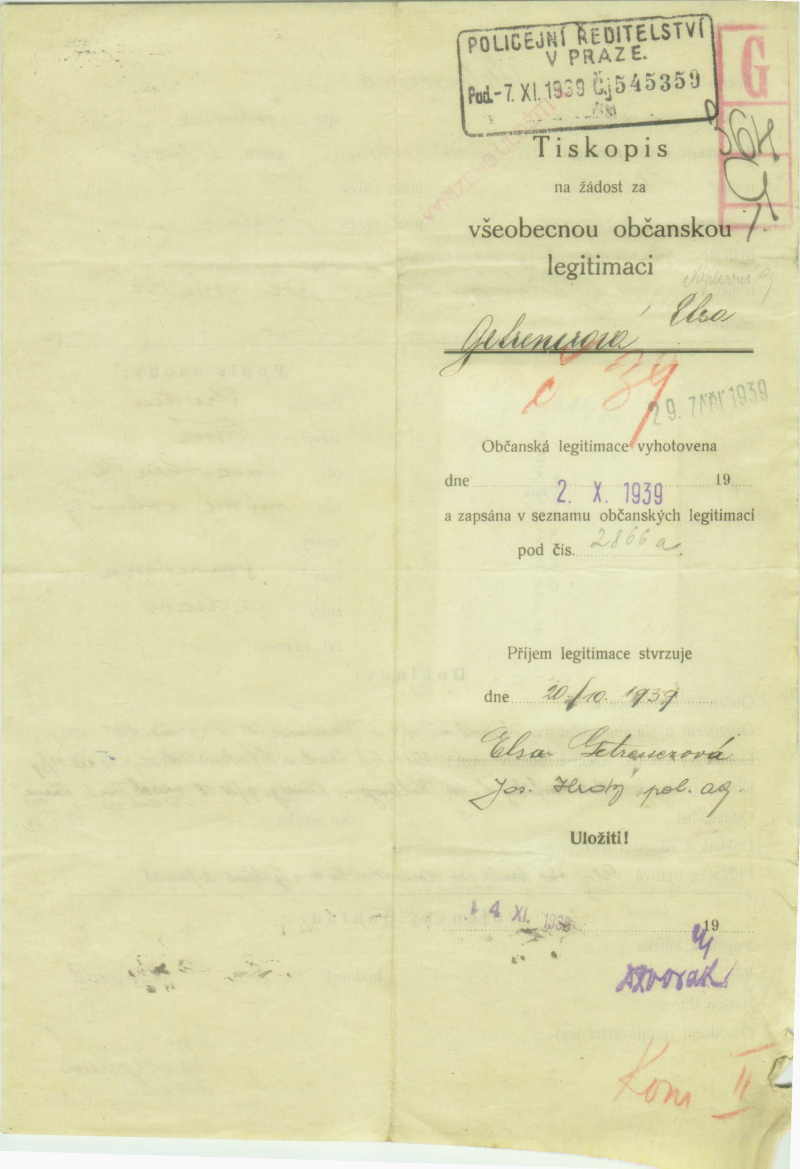 POLICEJNÍ ŘEDITELSTVÍ
V PRAZE.
Pod. -7. XI. 1939 Čj 545359
G
Tiskopis
na žádost za
všeobecnou občanskou
legitimaci
Elsa
č 39
29. 1939
Občanská legitimace vyhotovena
dne 2. X. 1939 19
a zapsána v seznamu občanských legitimací
pod čís. 2866 a.
Příjem legitimace stvrzuje
dne 20/10. 1939
Elsa
Jos. pol. ag.
Uložiti!
14 XI. 1939 19
Dvořák
Kom II